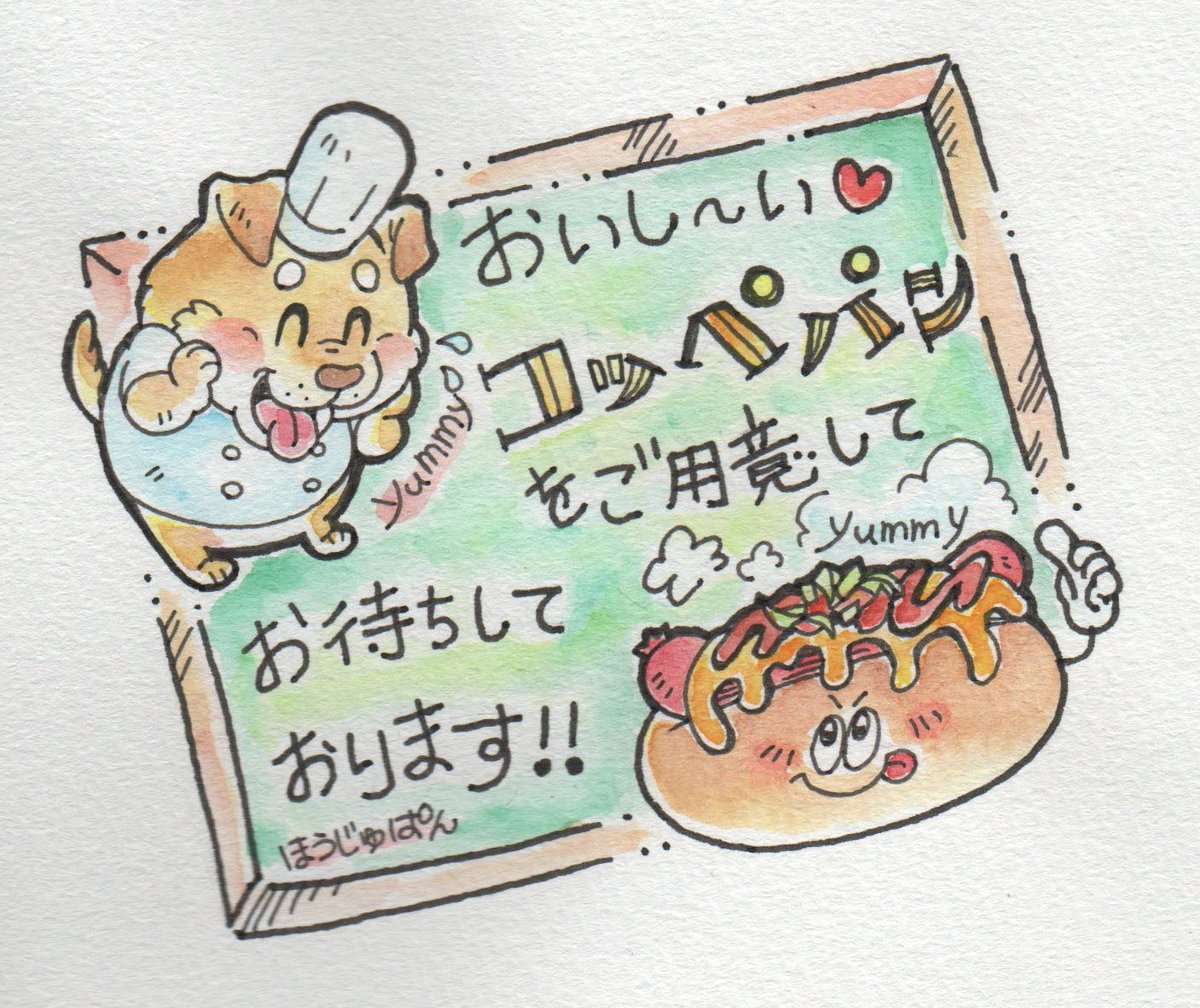 おいし〜い♥
コッペパン
をご用意して
yummy
yummy
お待ちして
おります!!
ほうじゅぱん